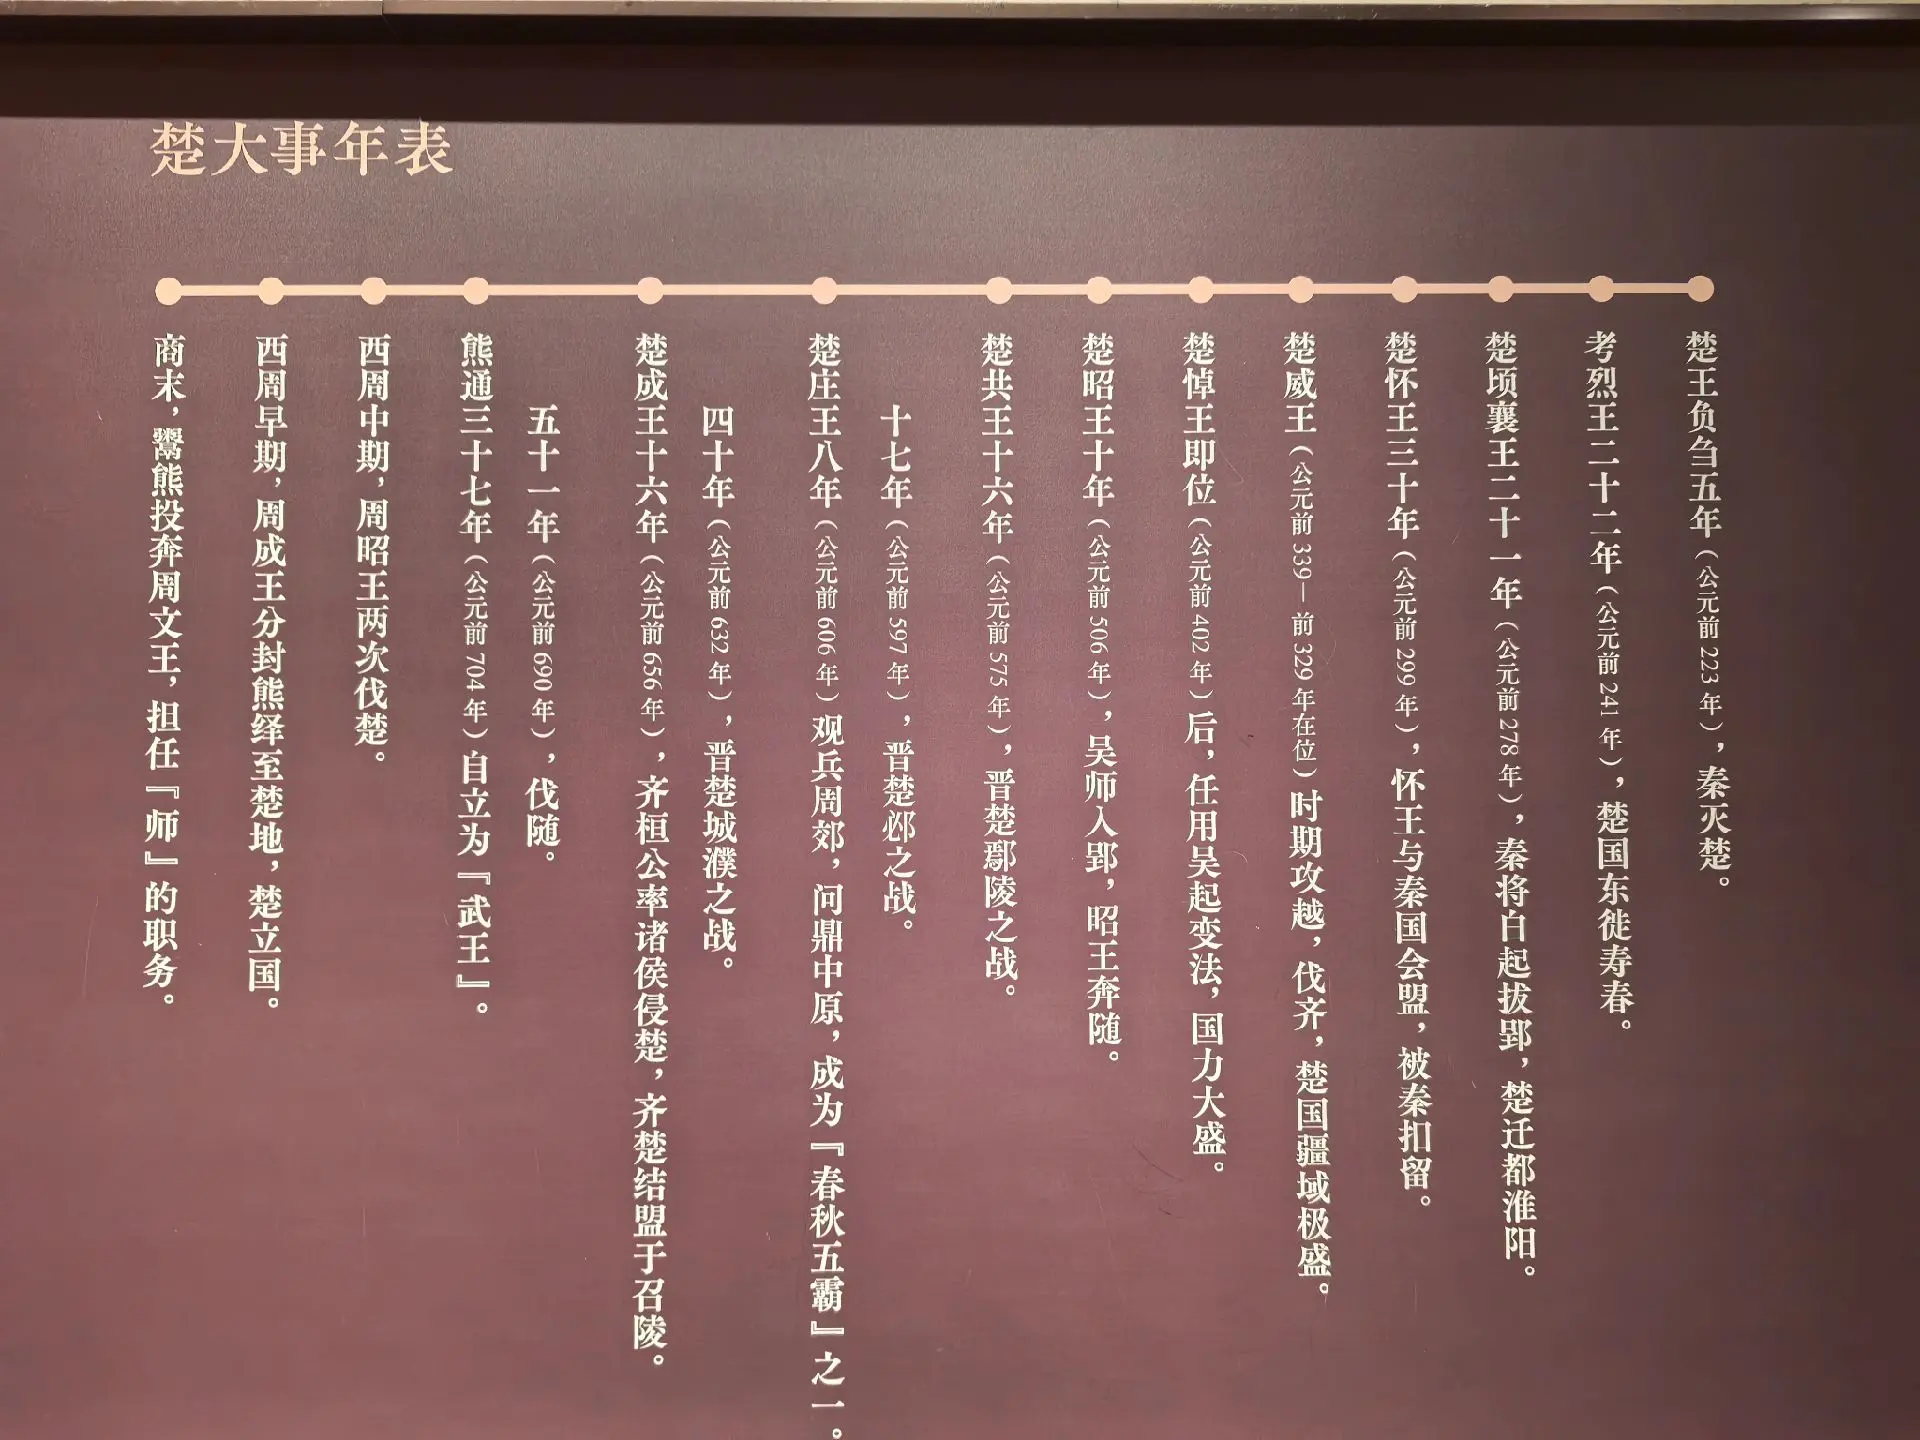 楚大事年表
商末，鬻熊投奔周文王，担任『师』的职务。
西周早期，周成王分封熊绎至楚地，楚立国。
西周中期，周昭王两次伐楚。
熊通三十七年（公元前704年）自立为『武王』。
五十一年（公元前690年），伐随。
楚成王十六年（公元前656年），齐桓公率诸侯侵楚，齐楚结盟于召陵。
四十年（公元前632年），晋楚城濮之战。
楚庄王八年（公元前606年）观兵周郊，问鼎中原，成为『春秋五霸』之一。
十七年（公元前597年），晋楚邲之战。
楚共王十六年（公元前575年），晋楚鄢陵之战。
楚昭王十年（公元前506年），吴师入郢，昭王奔随。
楚悼王即位（公元前402年）后，任用吴起变法，国力大盛。
楚威王（公元前339—前329年在位）时期攻越，伐齐，楚国疆域极盛。
楚怀王三十年（公元前299年），怀王与秦国会盟，被秦扣留。
楚顷襄王二十一年（公元前278年），秦将白起拔郢，楚迁都淮阳。
考烈王二十二年（公元前241年），楚国东徙寿春。
楚王负刍五年（公元前223年），秦灭楚。